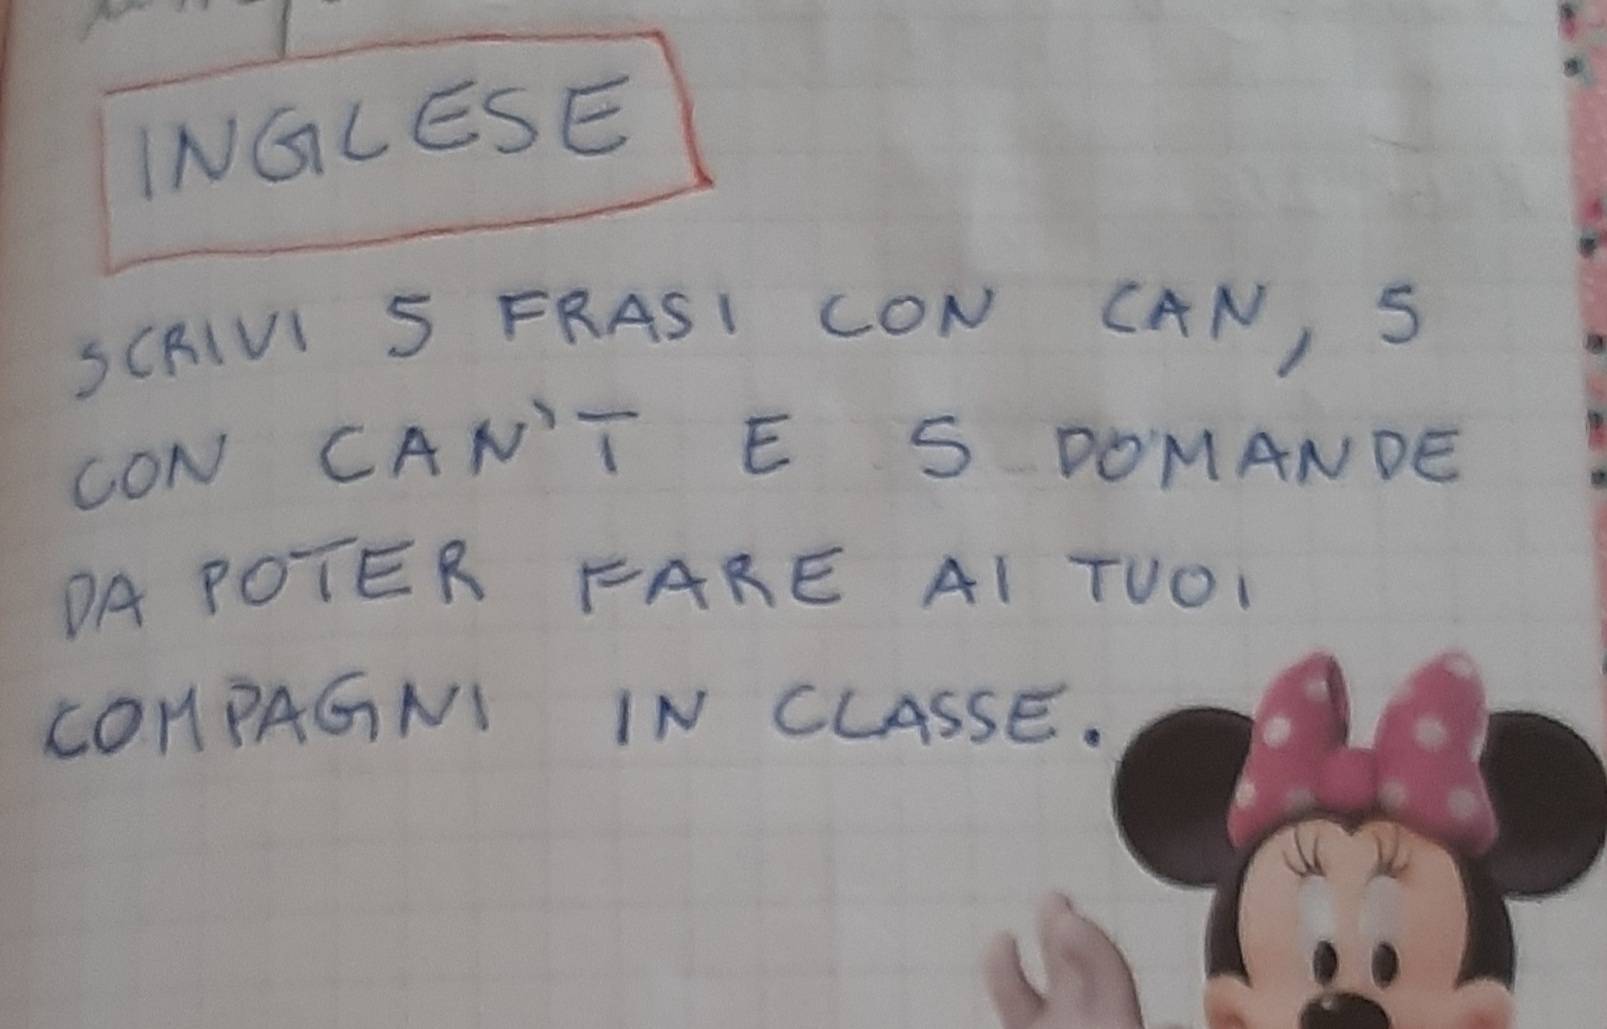 INGLESE
SCRIVI 5 FRASI CON CAN, 5
CON CAN'T E 5 DOMANDE
DA POTER FARE AI TUOI
COMPAGNI IN CLASSE.